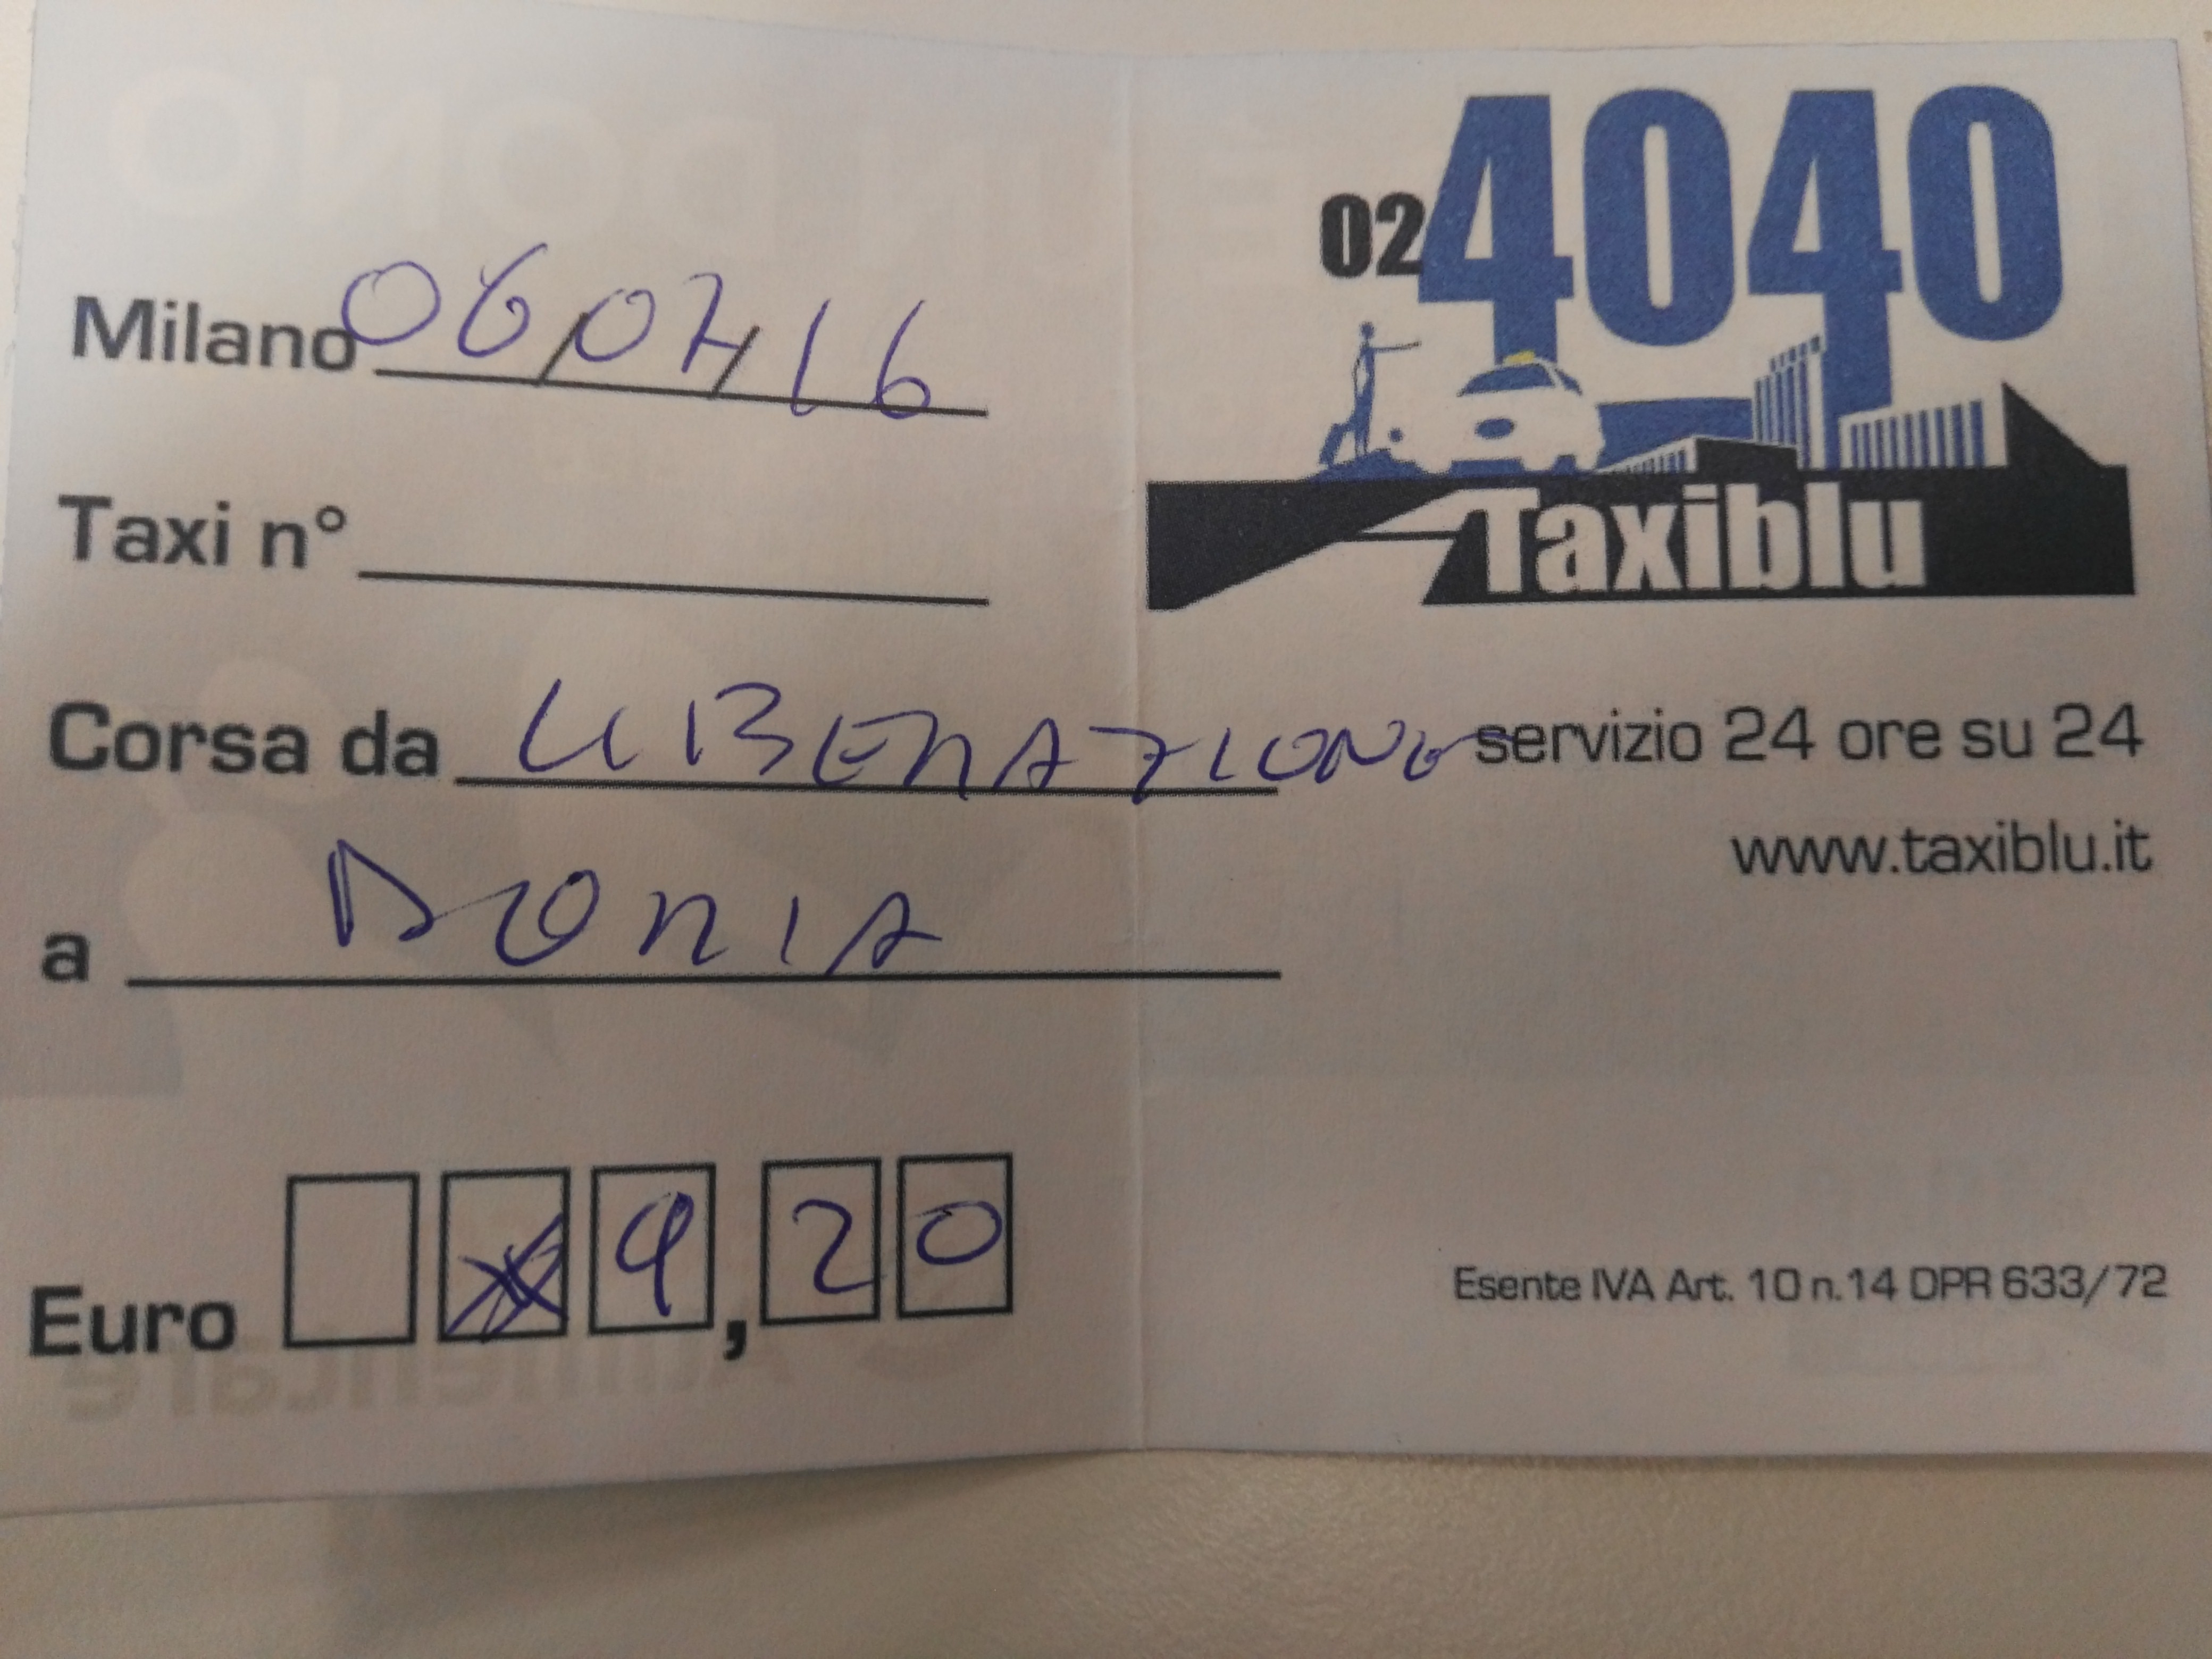 Milano 06/07/16
Taxi n°
Corsa da LIBERAZIONE
a DORIA
Euro 9,20
02 4040
Taxiblu
servizio 24 ore su 24
www.taxiblu.it
Esente IVA Art. 10 n.14 DPR 633/72